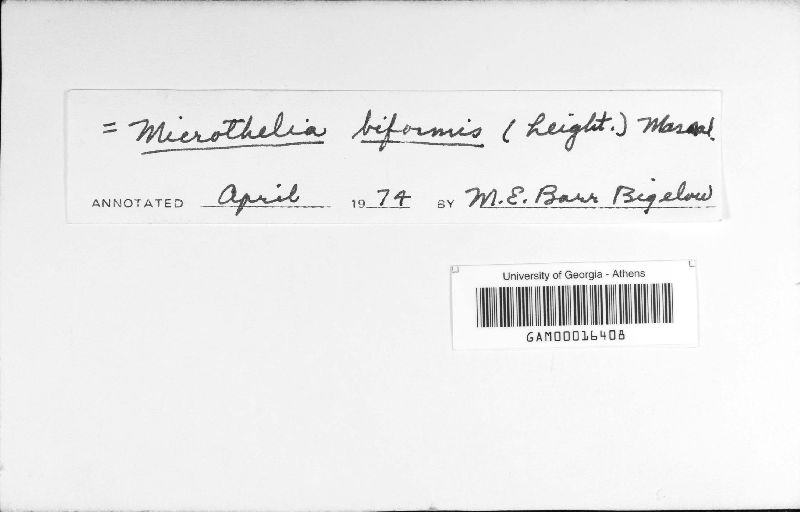 = Microthelia biformis (Leight.) Massal.
ANNOTATED April 1974 BY M.E. Barr Bigelow
University of Georgia - Athens
GAM00016408